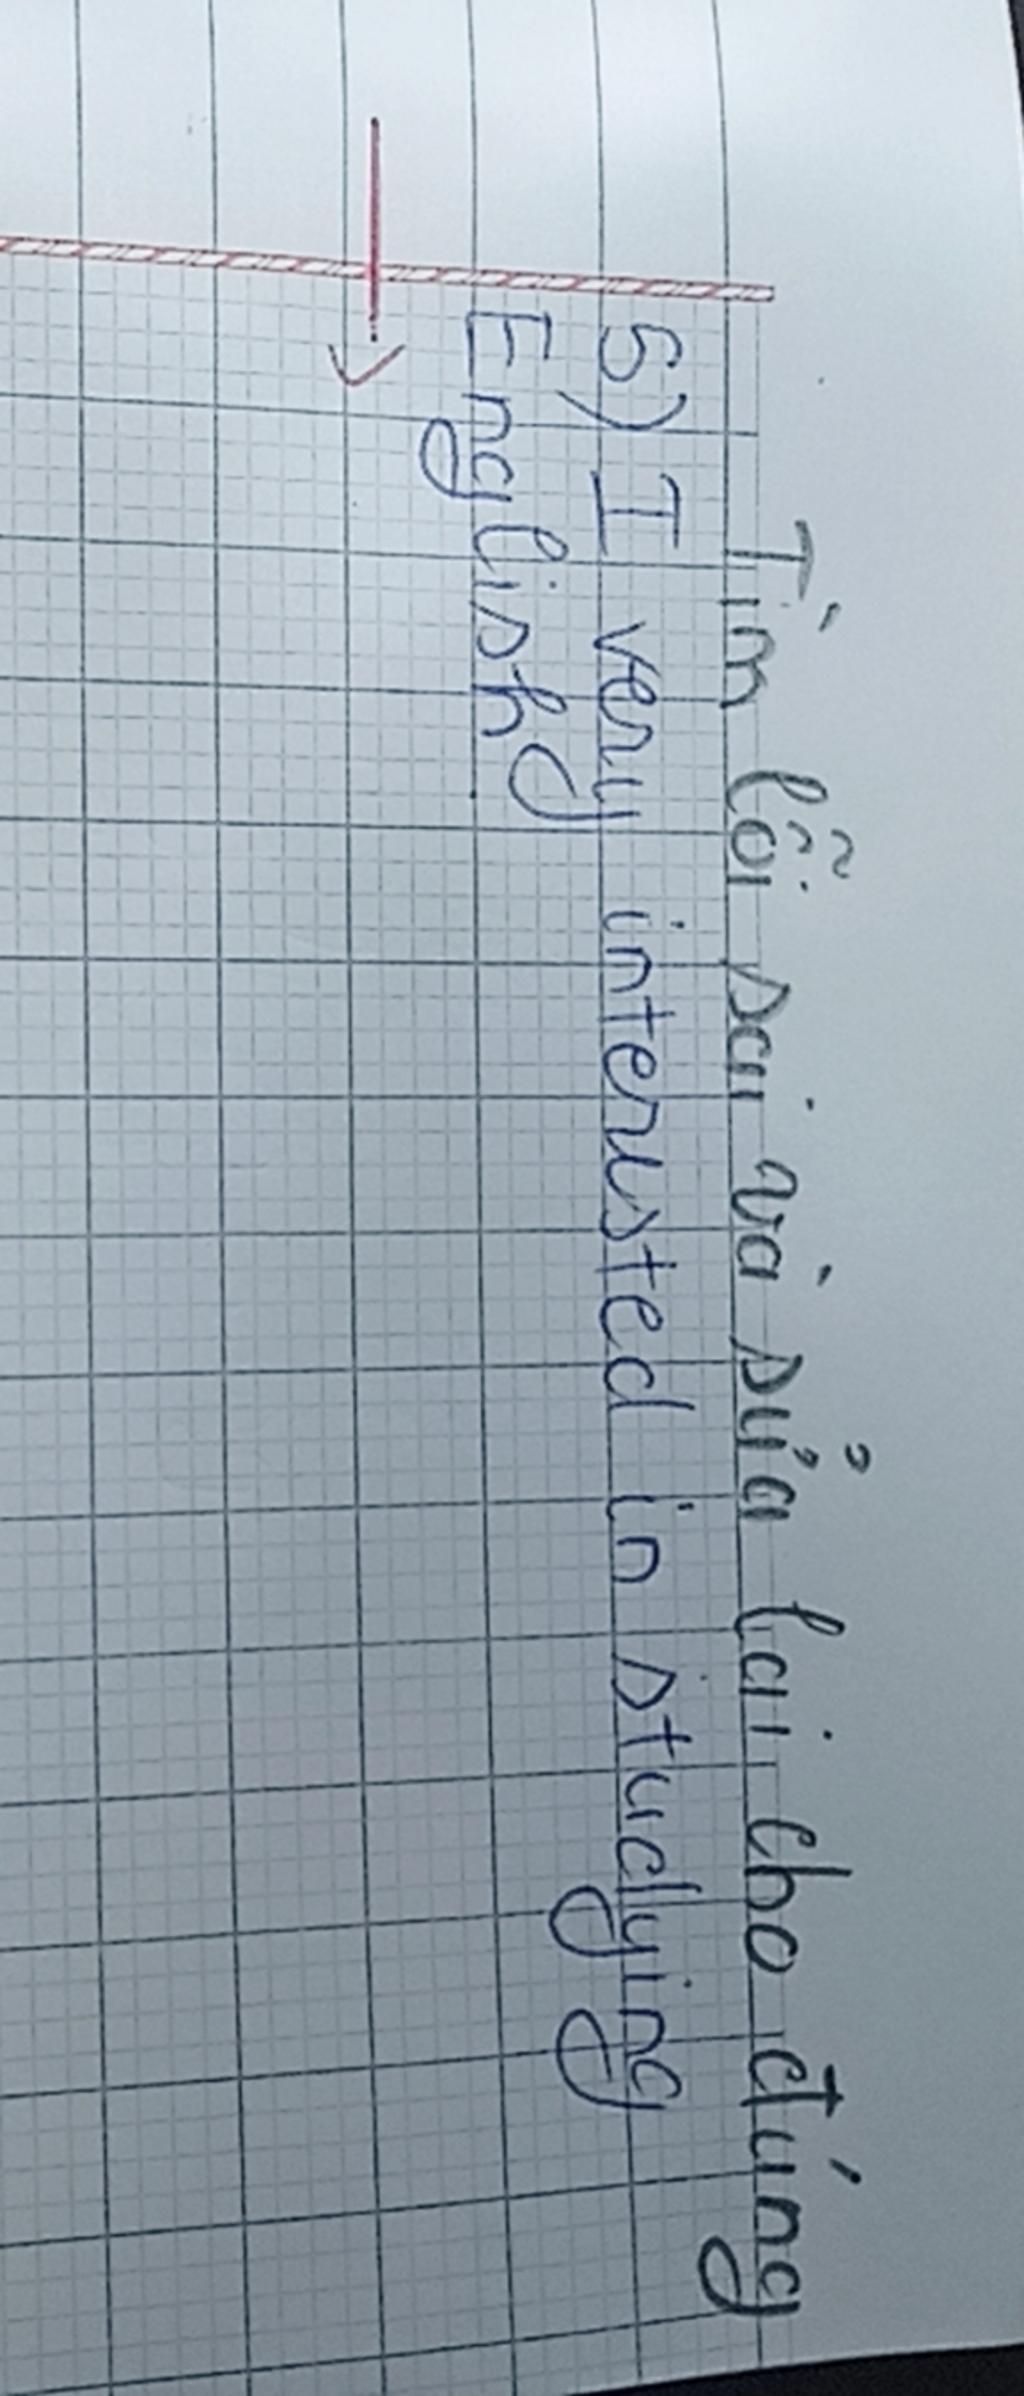 Tìm lỗi sai và sửa lại cho đúng
5) I very interested in studying
English.